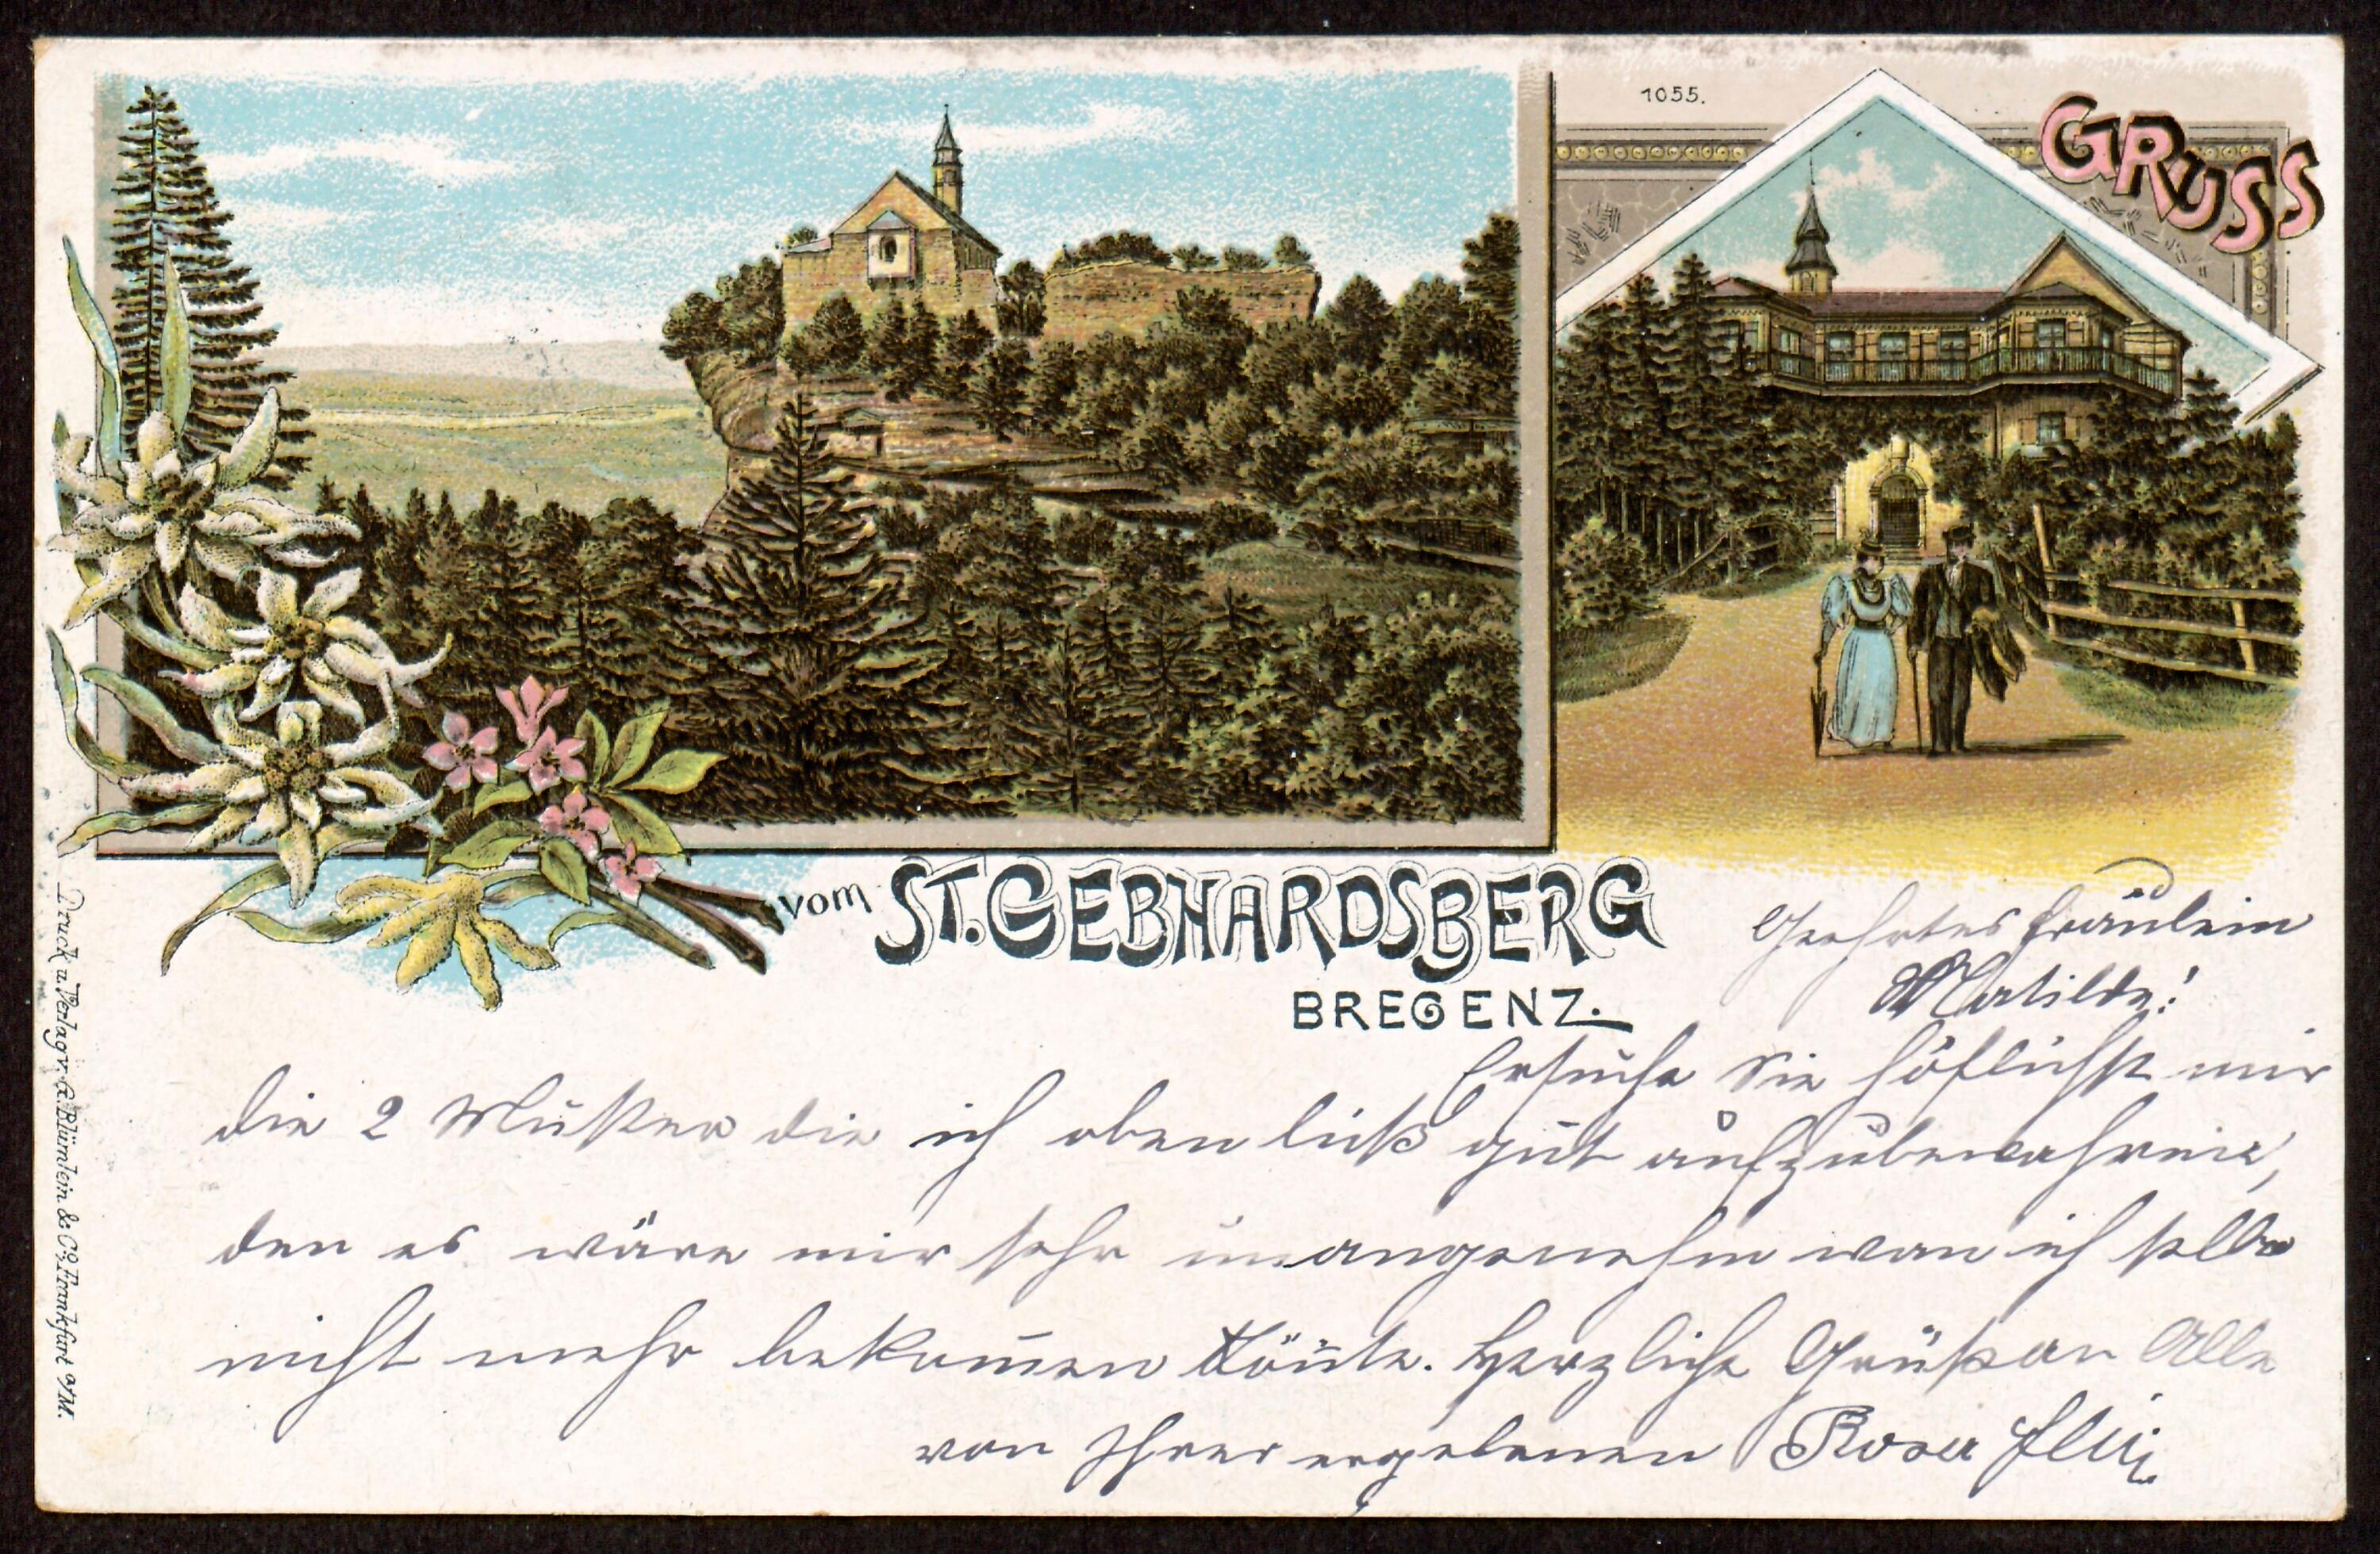 1055.
GRUSS
vom ST. GEBHARDSBERG
BREGENZ.
Druck u. Verlag v. C. Blümlein & Co., Frankfurt a/M.
Geehrtes Fräulein
Matilde!
Ersuche Sie höflichst mir
die 2 Muster die ich oben ließ gut aufzubewahren,
den es wäre mir sehr unangenehm wan ich selbe
nicht mehr bekom̅en kön̅te. Herzliche Grüße an Alle
von Ihrer ergebenen Rosa